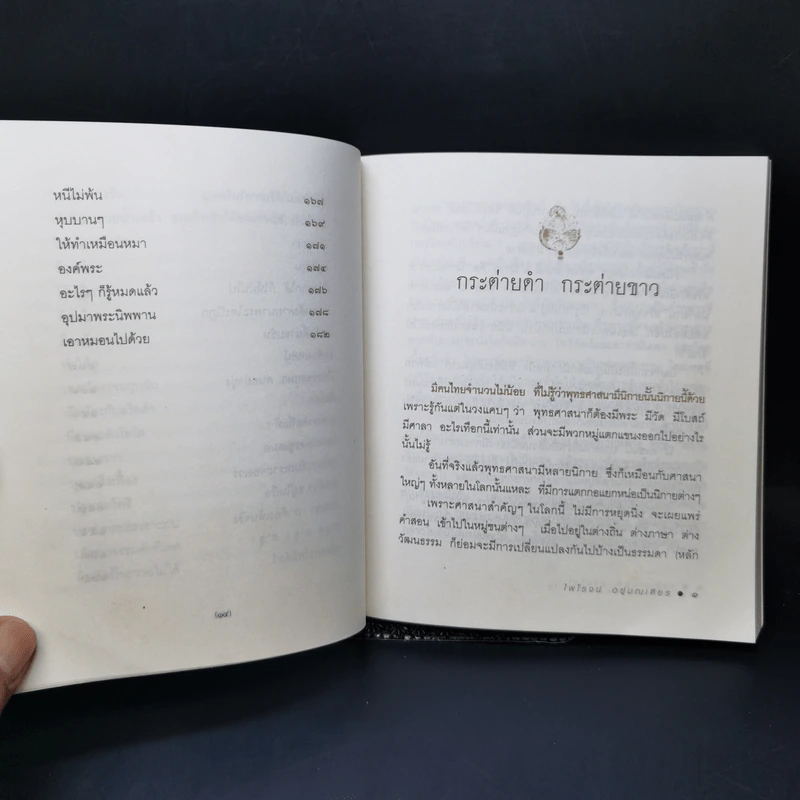 หนีไม่พ้น ๑๖๗
หุบบานๆ ๑๖๙
ให้ทำเหมือนหมา ๑๗๑
องค์พระ ๑๗๔
อะไรๆ ก็รู้หมดแล้ว ๑๗๖
อุปมาพระนิพพาน ๑๗๘
เอาหมอนไปด้วย ๑๘๒
(๑๕)
กระต่ายดำ กระต่ายขาว
มีคนไทยจำนวนไม่น้อย ที่ไม่รู้ว่าพุทธศาสนามีนิกายนั้นนิกายนี้ด้วย
เพราะรู้กันแต่ในวงแคบๆ ว่า พุทธศาสนาก็ต้องมีพระ มีวัด มีโบสถ์
มีศาลา อะไรเทือกนี้เท่านั้น ส่วนจะมีพวกหมู่แตกแขนงออกไปอย่างไร
นั้นไม่รู้
อันที่จริงแล้วพุทธศาสนามีหลายนิกาย ซึ่งก็เหมือนกับศาสนา
ใหญ่ๆ ทั้งหลายในโลกนั้นแหละ ที่มีการแตกกอแยกหน่อเป็นนิกายต่างๆ
เพราะศาสนาสำคัญๆ ในโลกนี้ ไม่มีการหยุดนิ่ง จะเผยแพร่
คำสอน เข้าไปในหมู่ชนต่างๆ เมื่อไปอยู่ในต่างถิ่น ต่างภาษา ต่าง
วัฒนธรรม ก็ย่อมจะมีการเปลี่ยนแปลงกันไปบ้างเป็นธรรมดา (หลัก
ไพโรจน์ อยู่มณเฑียร ● ๑